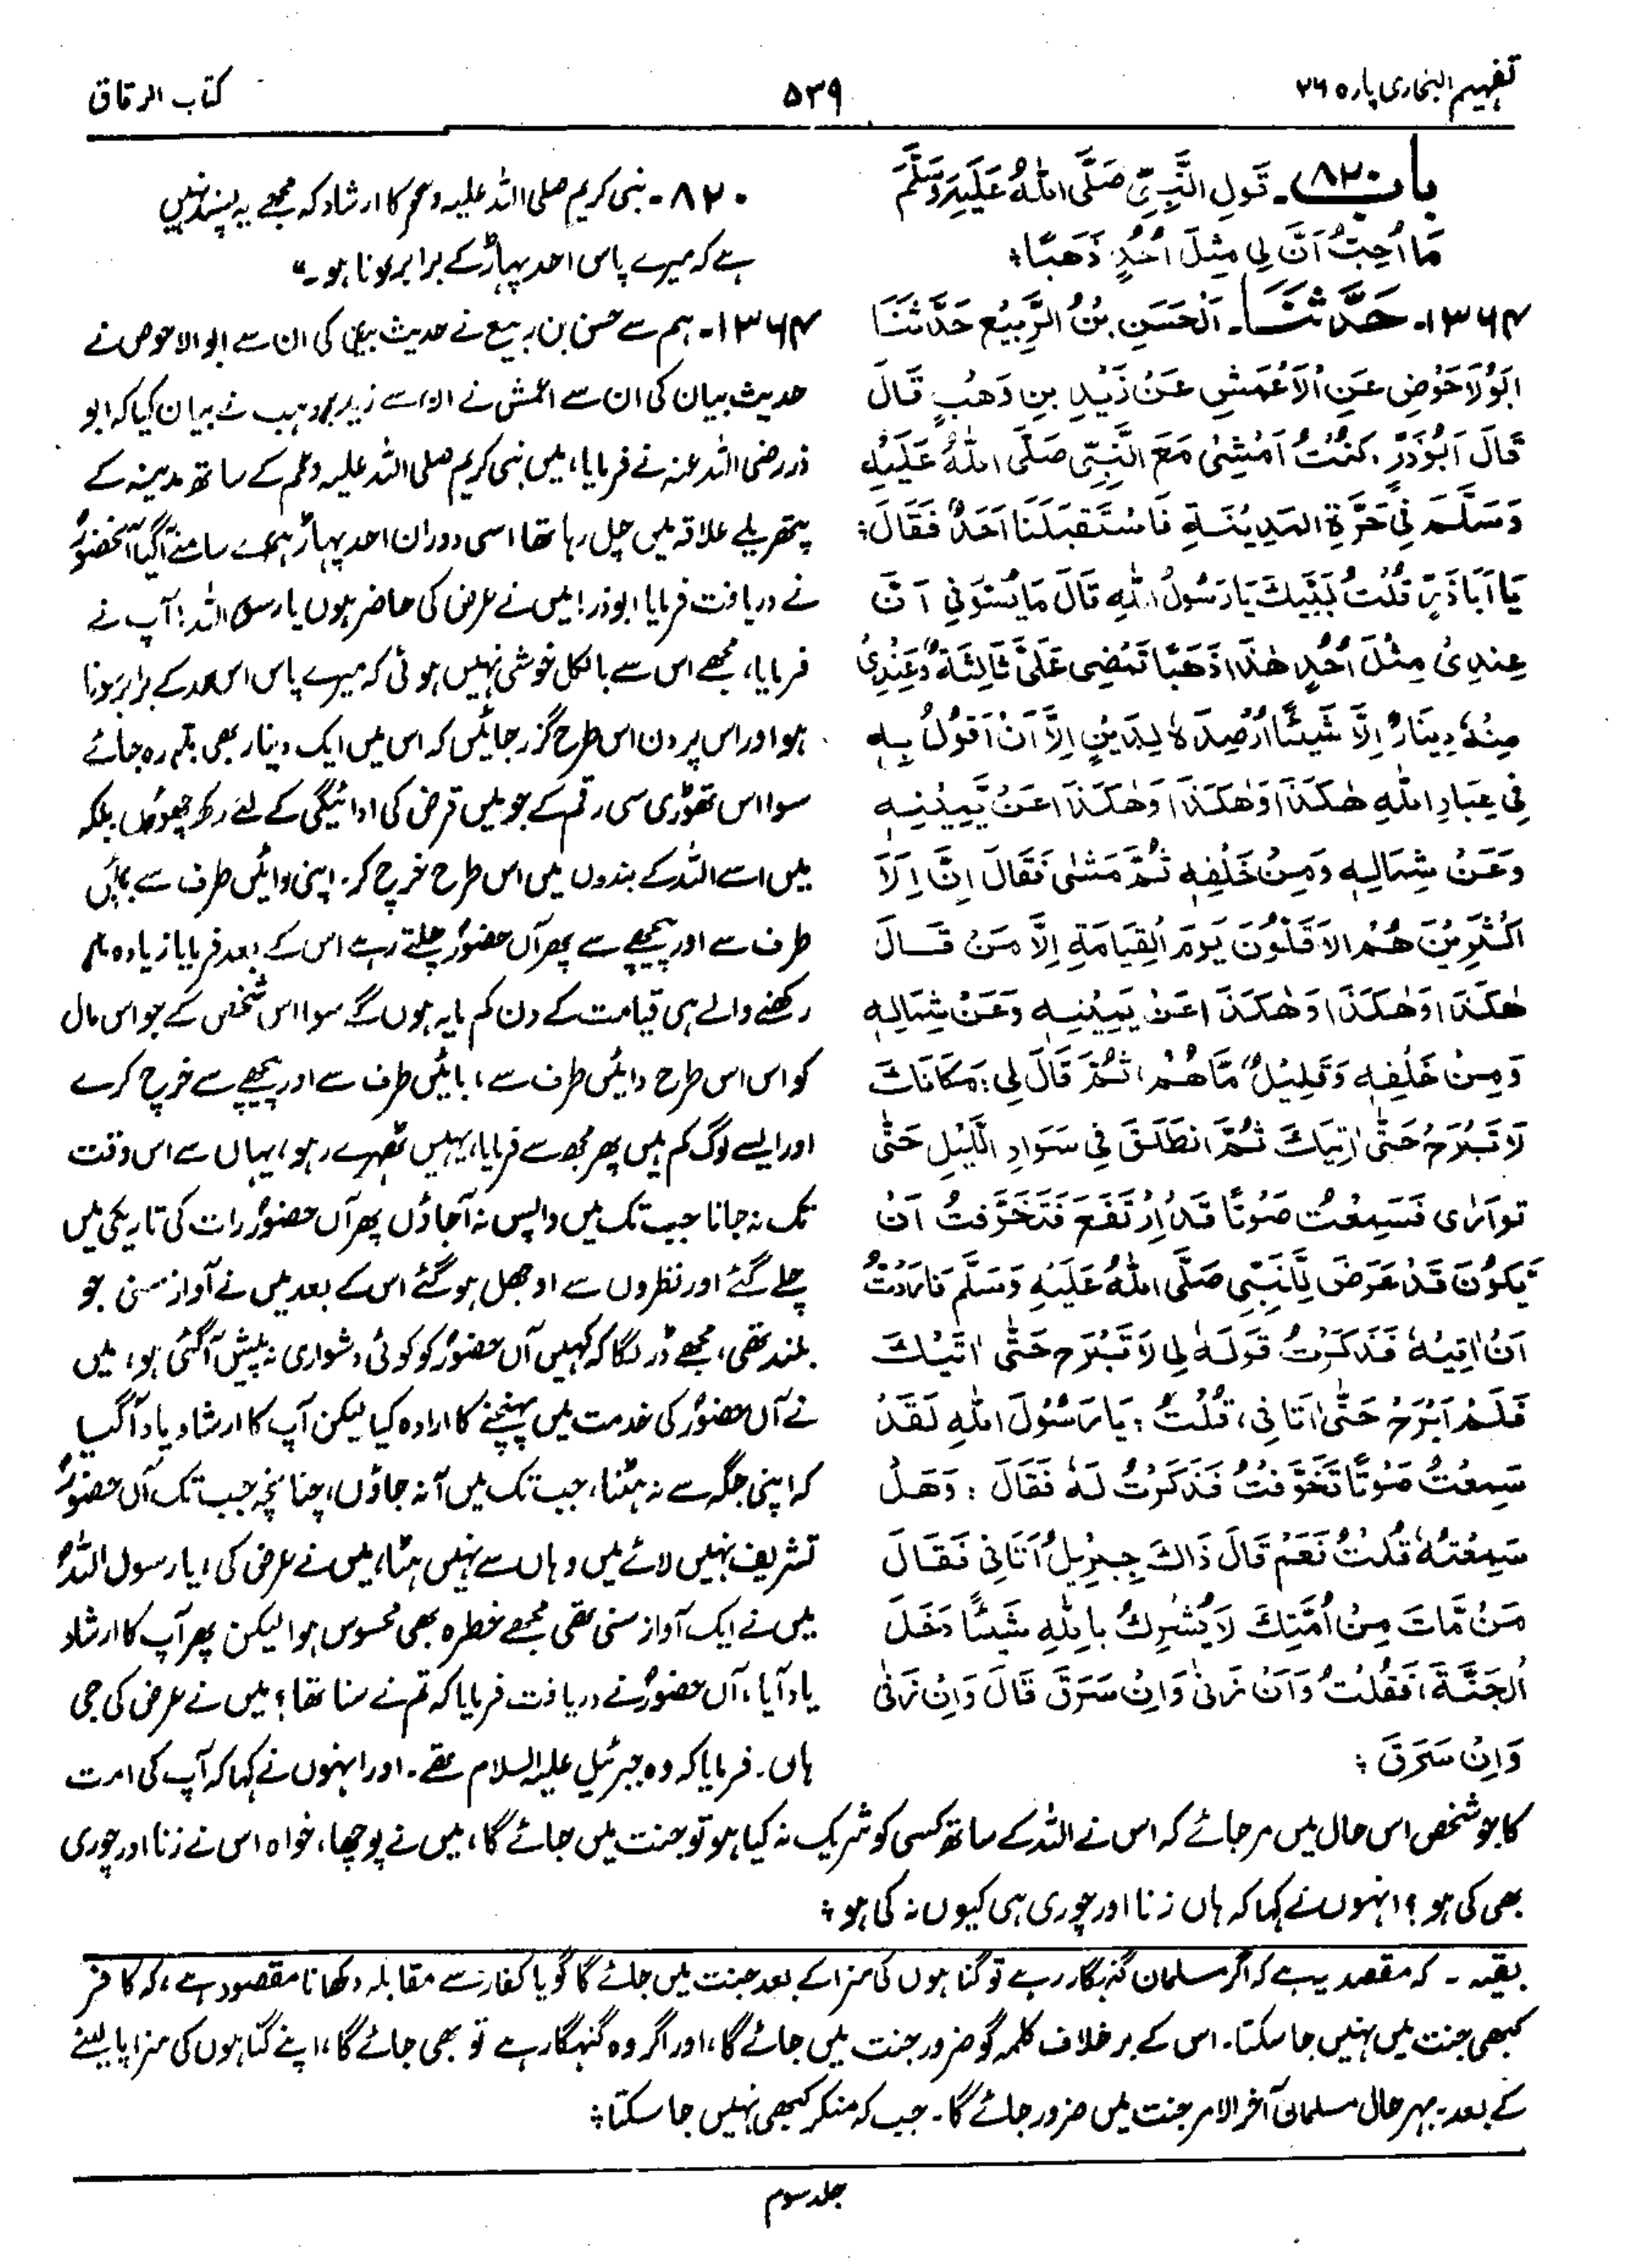 تفہیم البخاری پارہ ۲۶
۵۳۹
کتاب الرقاق
باب ۸۲۰۔ قَوْلِ النَّبِيِّ صَلَّى اللهُ عَلَيْهِ وَسَلَّمَ
مَا اُحِبُّ اَنَّ لِي مِثْلَ اُحُدٍ ذَهَبًا؛
۱۳۶۴۔ حَدَّثَنَا۔ اَلْحَسَنِ بْنُ الرَّبِيْعِ حَدَّثَنَا
اَبُوْلَاحْوَصِ عَنِ الْاَعْمَشِ عَنْ زَيْدِ بنِ وَهْبٍ قَالَ
قَالَ اَبُوْذَرٍّ، كُنْتُ اَمْشِىْ مَعَ النَّبِيِّ صَلَّى اللهُ عَلَيْهِ
وَسَلَّمَ فِىْ حَرَّةِ المَدِيْنَةِ فَاسْتَقْبَلَنَا اَحَدٌ فَقَالَ:
يَا اَبَا ذَرٍّ قُلْتُ لَبَّيْكَ يَا رَسُوْلَ اللهِ قَالَ مَا يَسُرُّنِي اَنَّ
عِنْدِىْ مِثْلَ اُحُدٍ هٰذَا ذَهَبًا تَمْضِى عَلَىَّ ثَالِثَةٌ وَّعِنْدِىْ
مِنْهُ دِيْنَارٌ اِلَّا شَيْئًا اُرْصِدُهٗ لِدَيْنٍ اِلَّا اَنْ اَقُوْلَ بِهٖ
فِى عِبَادِ اللهِ هٰكَذَا وَهٰكَذَا وَهٰكَذَا عَنْ يَّمِيْنِهٖ
وَعَنْ شِمَالِهٖ وَمِنْ خَلْفِهٖ ثُمَّ مَشٰى فَقَالَ اِنَّ الَا
كْثَرِيْنَ هُمُ الاَقَلُّوْنَ يَوْمَ الْقِيَامَةِ اِلَّا مَنْ قَالَ
هٰكَذَا وَهٰكَذَا وَهٰكَذَا عَنْ يَمِيْنِهٖ وَعَنْ شِمَالِهٖ
وَمِنْ خَلْفِهٖ وَقَلِيْلٌ مَّا هُمْ، ثُمَّ قَالَ لِى: مَكَانَكَ
لَا تَبْرَحْ حَتّٰى اٰتِيَكَ ثُمَّ انْطَلَقَ فِى سَوَادِ الَّيْلِ حَتّٰى
تَوَارٰى فَسَمِعْتُ صَوْتًا قَدْ اِرْتَفَعَ فَتَخَوَّفْتُ اَنْ
يَّكُوْنَ قَدْ عَرَضَ لِلنَّبِىِّ صَلَّى اللهُ عَلَيْهِ وَسَلَّمَ فَارَدْتُ
اَنْ اٰتِيَهٗ فَذَكَرْتُ قَوْلَهٗ لِى لَا تَبْرَحْ حَتّٰى اٰتِيَكَ
فَلَمْ اَبْرَحْ حَتّٰى اَتَانِى، قُلْتُ: يَا رَسُوْلَ اللهِ لَقَدْ
سَمِعْتُ صَوْتًا تَخَوَّفْتُ فَذَكَرْتُ لَهٗ فَقَالَ: وَهَلْ
سَمِعْتَهٗ قُلْتُ نَعَمْ قَالَ ذَاكَ جِبْرِيْلُ اَتَانِى فَقَالَ
مَنْ مَّاتَ مِنْ اُمَّتِكَ لَا يُشْرِكُ بِاللهِ شَيْئًا دَخَلَ
الْجَنَّةَ، فَقُلْتُ وَاَنْ زَنٰى وَاِنْ سَرَقَ قَالَ وَاِنْ زَنٰى
وَاِنْ سَرَقَ؛
۸۲۰۔ نبی کریم صلی اللہ علیہ وسلم کا ارشاد کہ مجھے یہ پسند نہیں
ہے کہ میرے پاس احد پہاڑ کے برابر سونا ہو۔“
۱۳۶۴۔ ہم سے حسن بن ربیع نے حدیث بیان کی ان سے ابوالاحوص نے
حدیث بیان کی ان سے اعمش نے ان سے زید بن وہب نے بیان کیا کہ ابو
ذر رضی اللہ عنہ نے فرمایا، میں نبی کریم صلی اللہ علیہ وسلم کے ساتھ مدینہ کے
پتھریلے علاقہ میں چل رہا تھا، اسی دوران احد پہاڑ ہمارے سامنے آگیا آنحضورؐ
نے دریافت فرمایا ابوذر! میں نے عرض کی حاضر ہوں یا رسول اللہ! آپ نے
فرمایا، مجھے اس سے بالکل خوشی نہیں ہوئی کہ میرے پاس اس احد کے برابر سونا
ہو اور اس پر دن اس طرح گزر جائیں کہ اس میں ایک دینار بھی باقی رہ جائے
سوا اس تھوڑی سی رقم کے جو میں قرض کی ادائیگی کے لئے رکھ چھوڑوں بلکہ
میں اسے اللہ کے بندوں میں اس طرح خرچ کر۔ اپنی دائیں طرف سے بائیں
طرف سے اور پیچھے سے پھر آں حضورؐ چلتے رہے اس کے بعد فرمایا زیادہ مال
رکھنے والے ہی قیامت کے دن کم مایہ ہوں گے سوا اس شخص کے جو اس مال
کو اس اس طرح دائیں طرف سے، بائیں طرف سے اور پیچھے سے خرچ کرے
اور ایسے لوگ کم ہیں پھر مجھ سے فرمایا، یہیں ٹھہرے رہو، یہاں سے اس وقت
تک نہ جانا جب تک میں واپس نہ آجاؤں پھر آں حضورؐ رات کی تاریکی میں
چلے گئے اور نظروں سے اوجھل ہو گئے اس کے بعد میں نے آواز سنی جو
بلند تھی، مجھے ڈر لگا کہ کہیں آں حضورؐ کو کوئی دشواری نہ پیش آگئی ہو، میں
نے آں حضورؐ کی خدمت میں پہنچنے کا ارادہ کیا لیکن آپ کا ارشاد یاد آگیا
کہ اپنی جگہ سے نہ ہٹنا، جب تک میں آ نہ جاؤں، چنانچہ جب تک آں حضورؐ
تشریف نہیں لائے میں وہاں سے نہیں ہٹا، میں نے عرض کی، یا رسول اللہؐ
میں نے ایک آواز سنی تھی مجھے خطرہ بھی محسوس ہوا لیکن پھر آپ کا ارشاد
یاد آیا، آں حضورؐ نے دریافت فرمایا کہ تم نے سنا تھا؟ میں نے عرض کی جی
ہاں۔ فرمایا کہ وہ جبرئیل علیہ السلام تھے۔ اور انہوں نے کہا کہ آپ کی امت
کا جو شخص اس حال میں مر جائے کہ اس نے اللہ کے ساتھ کسی کو شریک نہ کیا ہو تو جنت میں جائے گا، میں نے پوچھا، خواہ اس نے زنا اور چوری
بھی کی ہو؟ انہوں نے کہا کہ ہاں زنا اور چوری ہی کیوں نہ کی ہو؛
بقیہ ۔ کہ مقصد یہ ہے کہ اگر مسلمان گنہگار رہے تو گناہوں کی سزا کے بعد جنت میں جائے گا گویا کفار سے مقابلہ دکھانا مقصود ہے، کہ کافر
کبھی جنت میں نہیں جا سکتا۔ اس کے برخلاف کلمہ گو ضرور جنت میں جائے گا، اور اگر وہ گنہگار ہے تو بھی جائے گا، اپنے گناہوں کی سزا پا لینے
کے بعد۔ بہر حال مسلمان آخر الامر جنت میں ضرور جائے گا۔ جب کہ منکر کبھی نہیں جا سکتا؛
جلد سوم